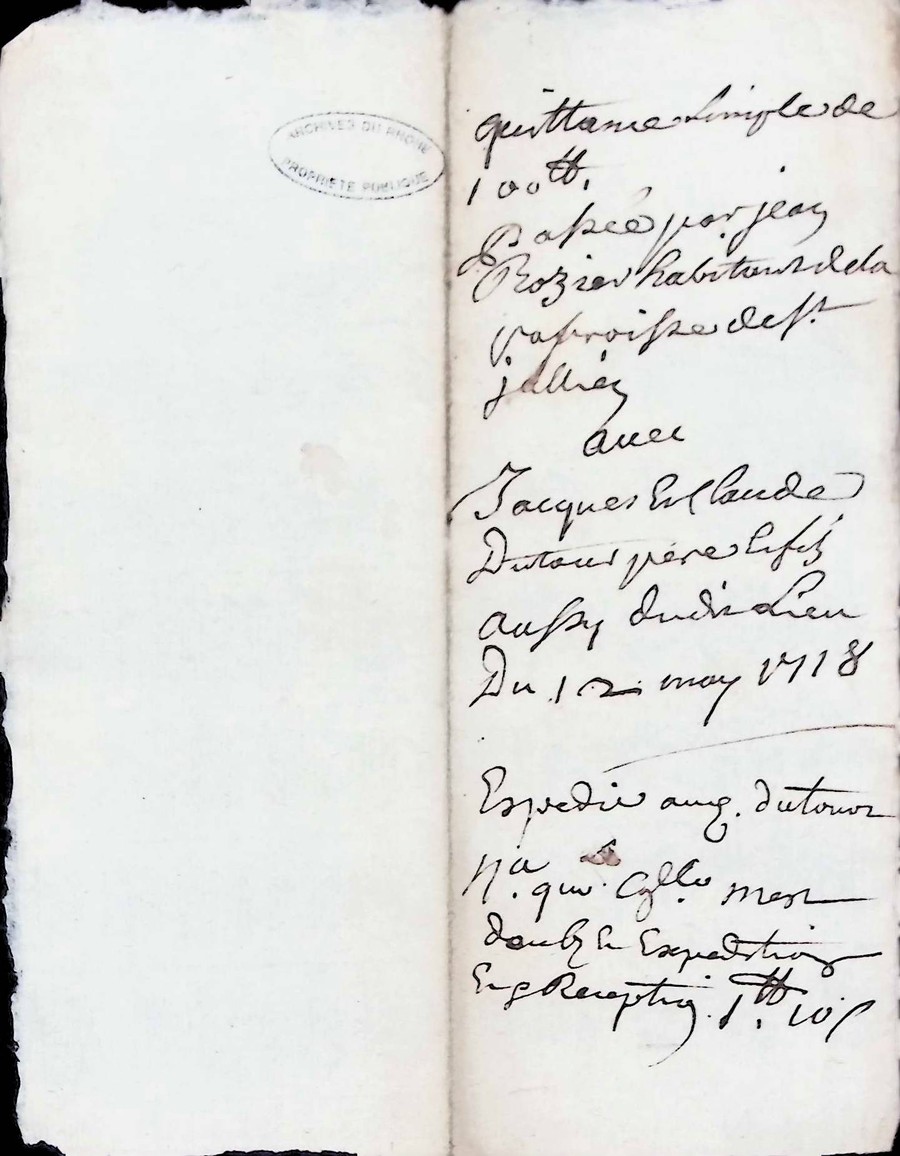 ARCHIVES DU RHONE
PROPRIETE PUBLIQUE
quittance simple de
100 ₶.
Passée par jean
Rozier habitant de la
parroisse de St
jullien
avec
Jacques et Claude
Dutour père & fils
aussy dudit Lieu
Du 12 may 1718
Expedié aux d. dutour
Na. que mest
deub en Expedition
Et Reception 1 ₶. 10 s